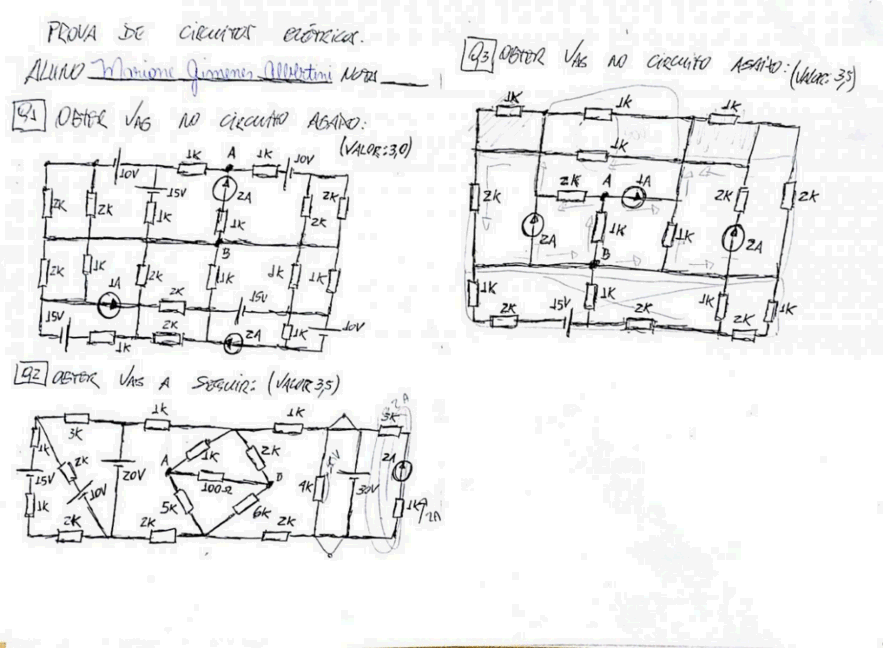 PROVA DE CIRCUITOS ELÉTRICOS.
ALUNO Mariane Gimenes Albertini NOTA
Q1 OBTER VAB NO CIRCUITO ABAIXO:
(VALOR: 3,0)
1K A 1K 10V
10V 15V 2A 2K
2K 2K 1K 1K 2K
B
2K 1K 2K 1K 1K 1K
1A 2K 15V
15V 1K 2K 2A 1K 10V
Q2 OBTER VAB A SEGUIR: (VALOR 3,5)
3K 1K 1K 3K 2A
1K 2K 1K 2K 2A
15V 10V 20V A 100Ω B 4K 30V
1K 5K 6K 1K 2A
2K 2K 2K
Q3 OBTER VAB NO CIRCUITO ABAIXO: (VALOR: 3,5)
1K 1K 1K
1K
2K 2K A 1A 2K 2K
2A 1K 1K 2A
B
1K 1K 1K 1K
2K 15V 2K 2K